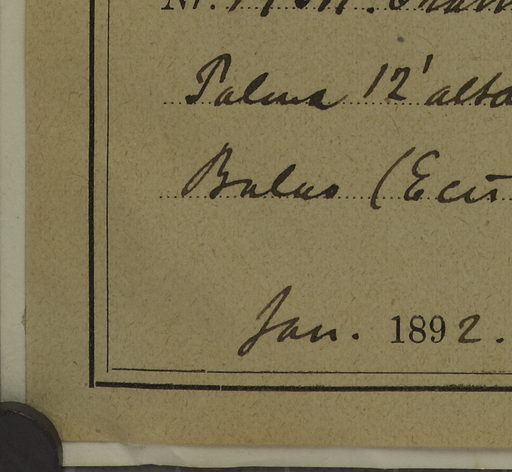 Nr.
Palma 12' alta
Balao (Ecu
Jan. 1892.